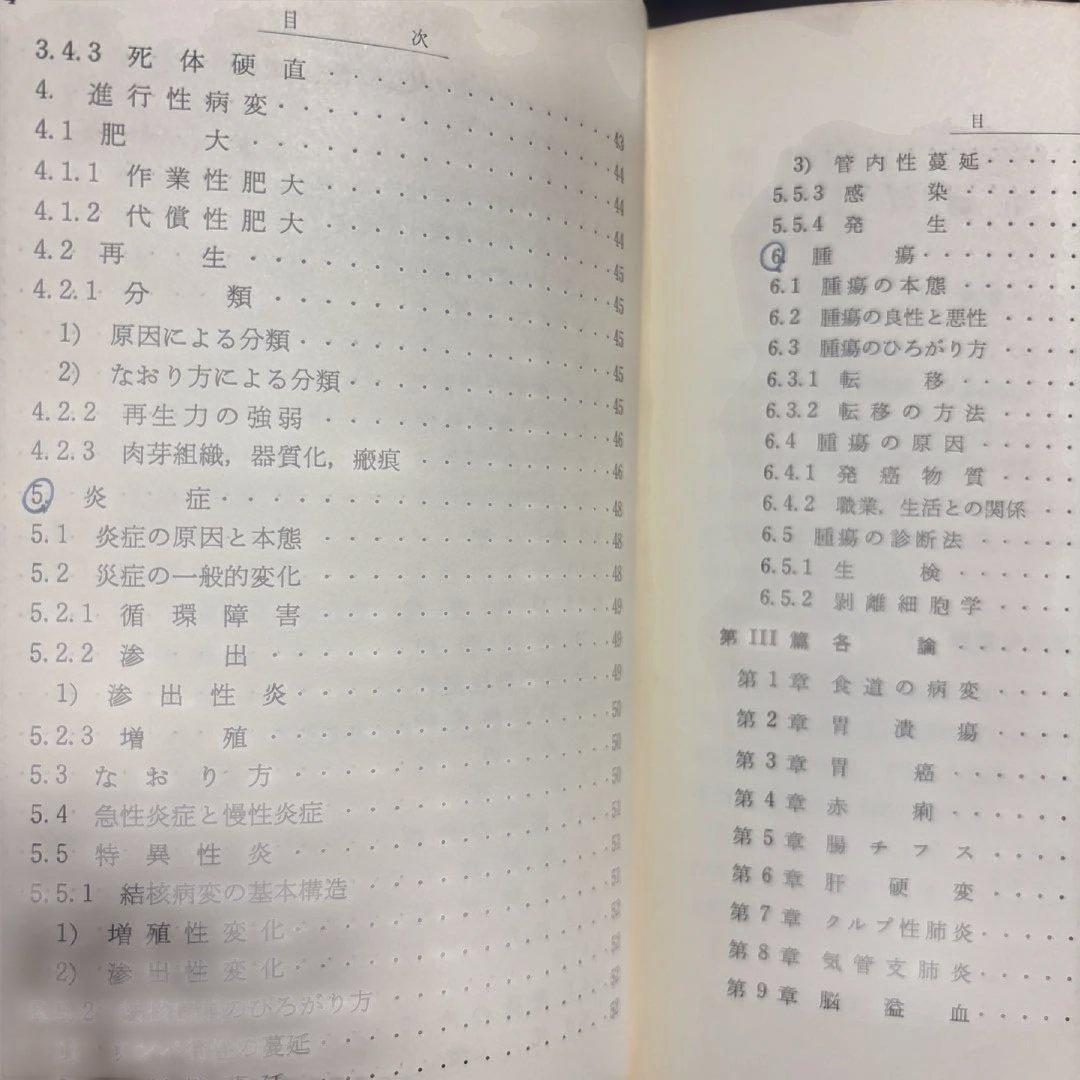 目次
3.4.3 死体硬直 43
4. 進行性病変 44
4.1 肥大 44
4.1.1 作業性肥大 44
4.1.2 代償性肥大 45
4.2 再生 45
4.2.1 分類 45
1) 原因による分類 45
2) なおり方による分類 45
4.2.2 再生力の強弱 46
4.2.3 肉芽組織,器質化,瘢痕 46
5. 炎症 48
5.1 炎症の原因と本態 48
5.2 災症の一般的変化 48
5.2.1 循環障害 49
5.2.2 滲出 49
1) 滲出性炎 49
5.2.3 増殖 50
5.3 なおり方 50
5.4 急性炎症と慢性炎症 50
5.5 特異性炎
5.5.1 結核病変の基本構造
1) 増殖性変化
2) 滲出性変化
のひろがり方
行性の蔓延
目
3) 管内性蔓延
5.5.3 感染
5.5.4 発生
6. 腫瘍
6.1 腫瘍の本態
6.2 腫瘍の良性と悪性
6.3 腫瘍のひろがり方
6.3.1 転移
6.3.2 転移の方法
6.4 腫瘍の原因
6.4.1 発癌物質
6.4.2 職業,生活との関係
6.5 腫瘍の診断法
6.5.1 生検
6.5.2 剝離細胞学
第III篇 各論
第1章 食道の病変
第2章 胃潰瘍
第3章 胃癌
第4章 赤痢
第5章 腸チフス
第6章 肝硬変
第7章 クルプ性肺炎
第8章 気管支肺炎
第9章 脳溢血